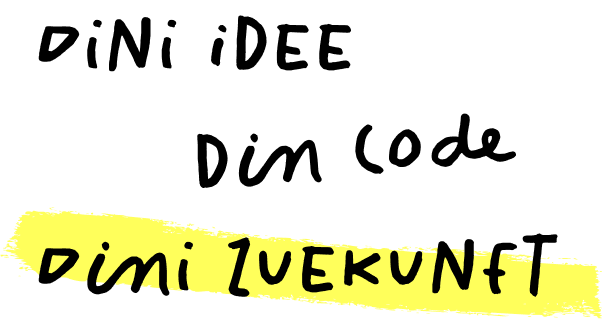 DiNi iDEE
Din Code
Dini ZUEKUNFT